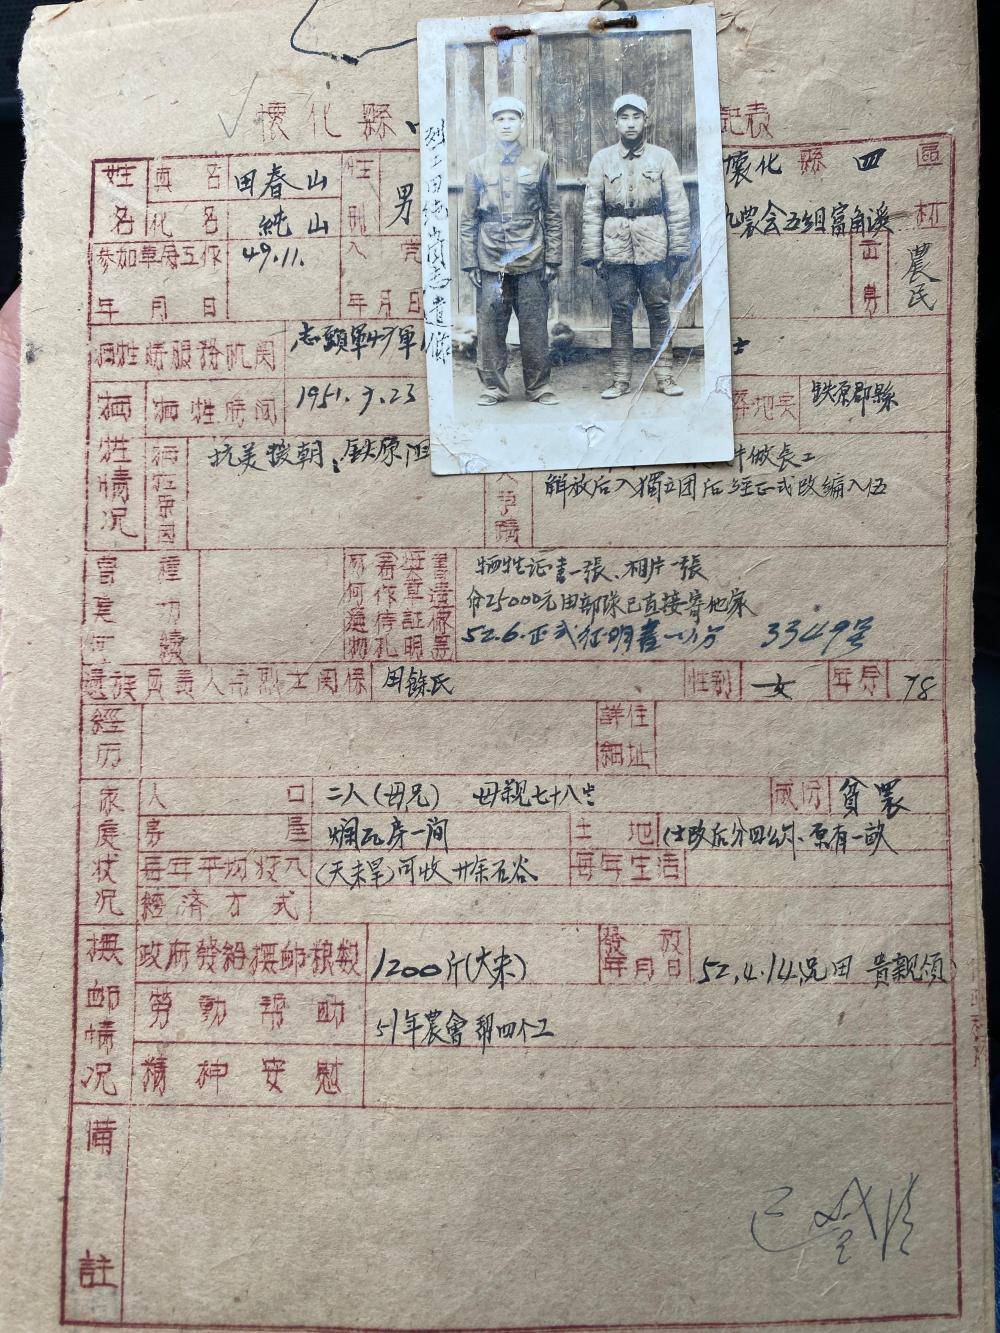 懷化縣 記表
姓名 真名 田春山 性別 男 懷化縣四區
化名 純山 九農会五组富角溪 村
参加革命工作年月日 49.11. 入党年月日 出身 農民
烈士田純山同志遺像
牺牲時服務机関 志願軍 軍 士
牺牲情况 牺牲時间 1951.9.23 地点 鉄原郡縣
牺牲原因 抗美援朝:鉄原 做長工
解放后入獨立团后经正式改编入伍
曾立何種功績
牺牲证書一張、相片一張
分25000元由部隊已直接寄他家
52.6.正式征明書一分 3349号
遺族負責人与烈士関係 田餘氏 性别 女 年令 78
經历 詳細住址
家庭状况 人口 二人(母兄) 母親七十八岁 成份 貧農
房屋 烂瓦房一间 土地 (土改后分四公斗、原有一畝
每年平均收入 (天未旱)可收廿余石谷 每年生活
經濟方式
撫卹情况 政府發給撫卹粮数 1200斤(大米) 發放年月日 52.4.14.兄田 貴親領
勞動帮助 51年農會帮四个工
精神安慰
備註
已登